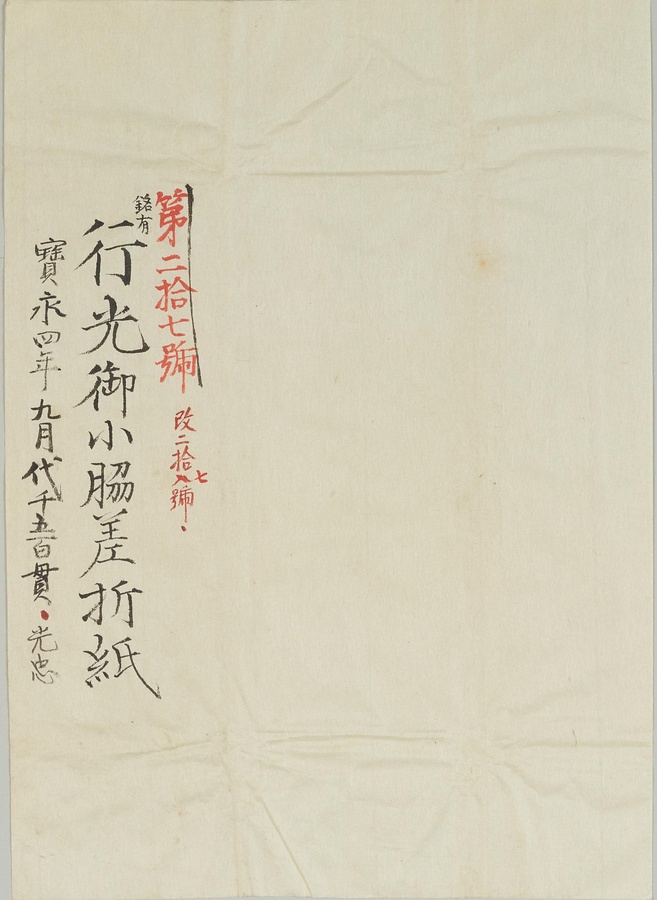 第二拾七號
改二拾八七號
銘有
行光御小脇差折紙
寳永四年九月代千五百貫・光忠